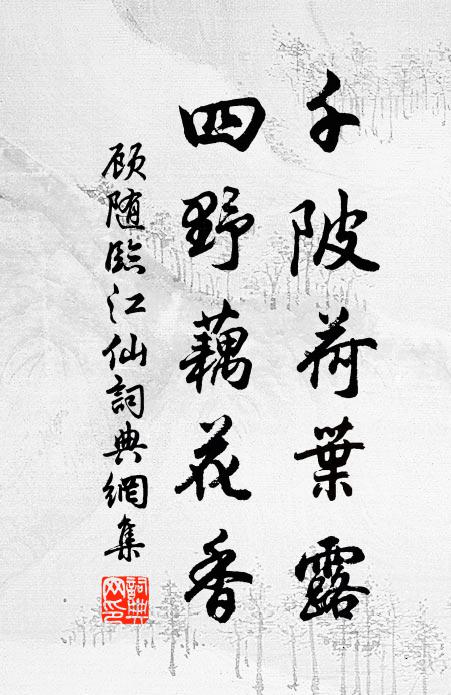 千陂荷葉露
四野藕花香
顾随臨江仙詞典網集